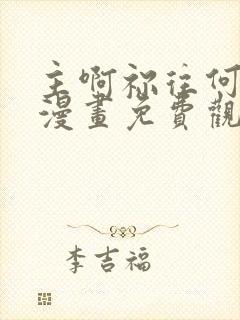 主啊祢往何
漫畫免費觀
李吉福